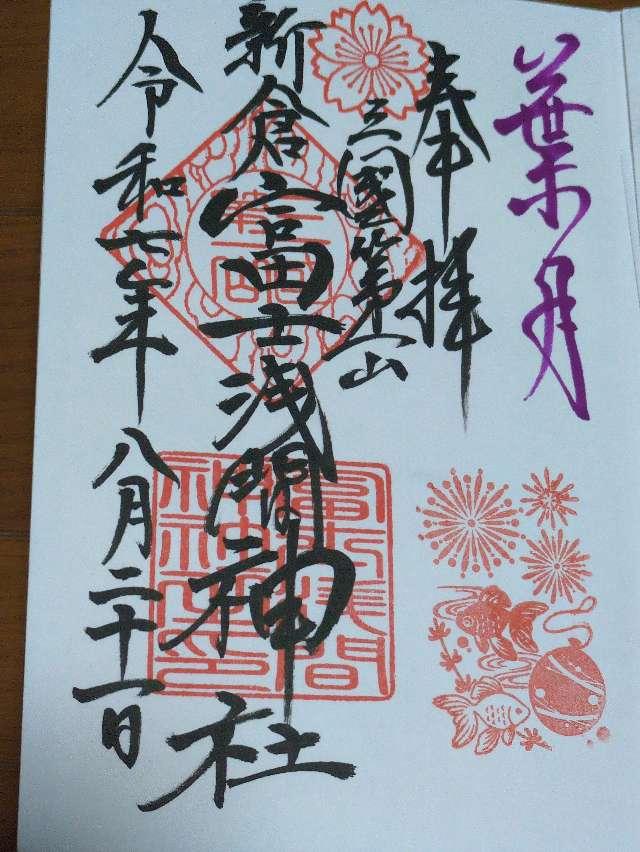 葉月
奉拝
三國第一山
新倉富士浅間神社
令和七年 八月二十一日